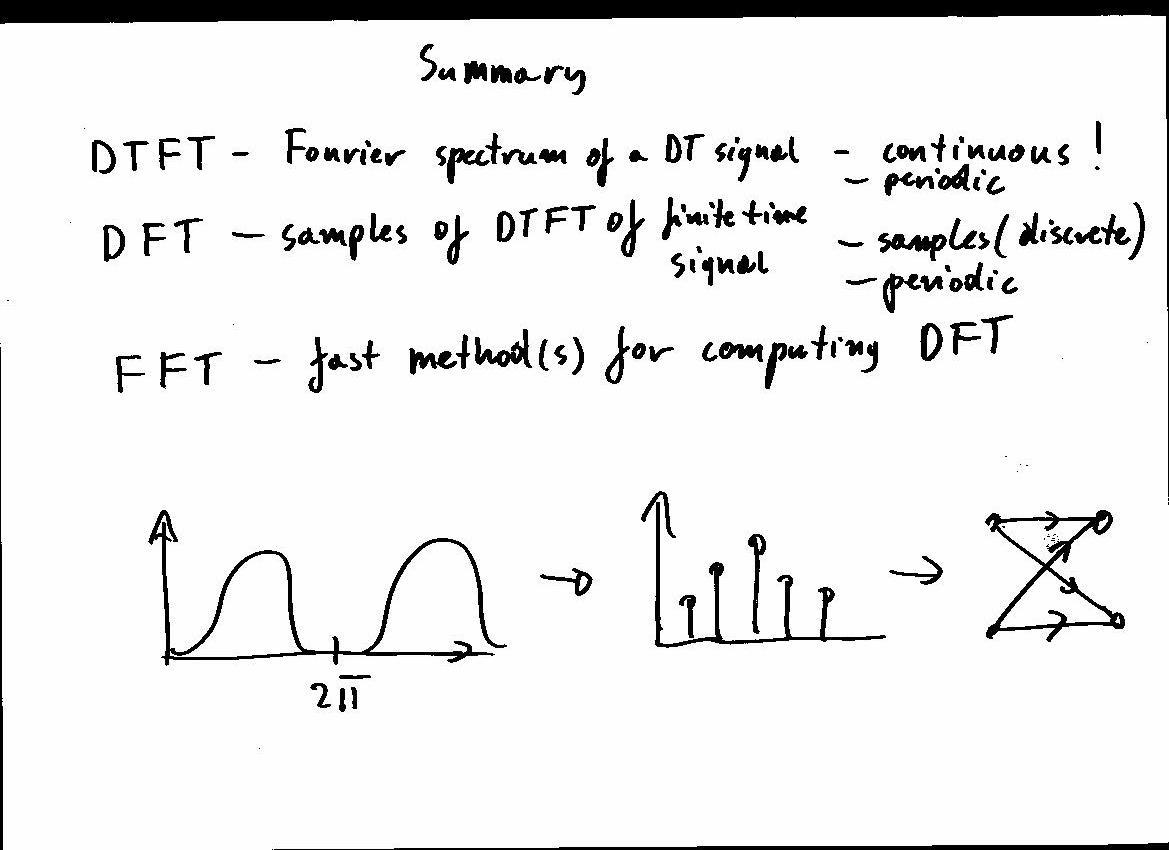 Summary
DTFT - Fourier spectrum of a DT signal - continuous !
- periodic
DFT - samples of DTFT of finite time signal
- samples (discrete)
- periodic
FFT - fast method(s) for computing DFT
2π